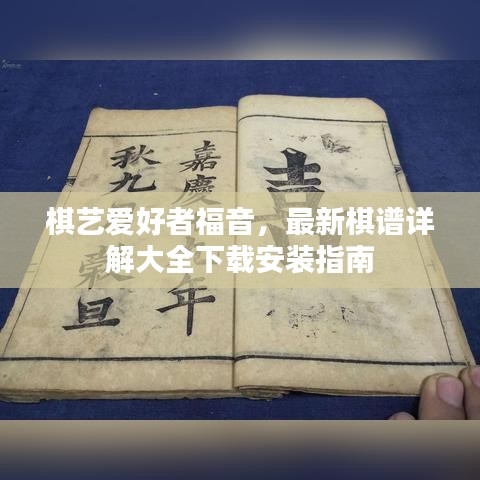 棋艺爱好者福音，最新棋谱详
解大全下载安装指南
嘉慶年
秋九旦